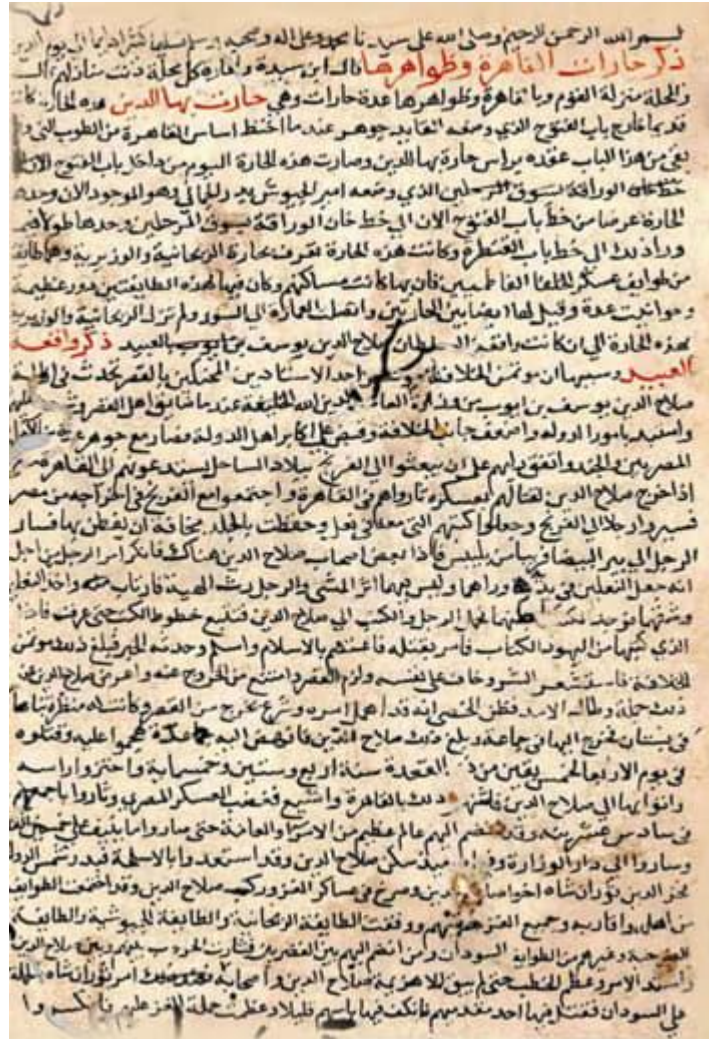 بسم الله الرحمن الرحيم وصلى الله على سيدنا محمد وعلى اله وصحبه وسلم تسليما كثيرا دايما الى يوم الدين
ذكر حارات القاهرة وظواهرها قال ابن سيدة والحارة كل محلة دنت منازلهم
والمحلة منزلة القوم وبالقاهرة وظواهرها عدة حارات وهي حارت بها الدين هذه الحارة كانت
قديما خارج باب الفتوح الذي وضعه القايد جوهر عند ما اختط اساس القاهرة من الطوب الني وقد
بقى من هذا الباب عقده براس حارة بها الدين وصارت هذه الحارة اليوم من داخل باب الفتوح الان
الذي وضعه امير الجيوش بدر الجمالي وهو الموجود الان وحد هذه
الحارة عرضا من خط باب الفتوح الان الى خط خان الوراقة بسوق المرحلين وحدها طولا فيما
ورا ذلك الى خط باب القنطرة وكانت هذه الحارة تعرف بحارة الريحانية والوزيرية وهما طايفتان
من طوايف عسكر الخلفا الفاطميين فان بها كانت مساكنهم وكان فيها لهذه الطايفتين دور عظيمة
وحوانيت عدة وقيل لها ايضا بين الحارتين واتصلت العمارة الى السور ولم تزل الريحانية والوزيرية
بهذه الحارة الى ان كانت واقعة السلطان صلاح الدين يوسف بن ايوب بالعبيد ذكر واقعة
العبيد وسببها ان موتمن الخلافة احد الاستادين المحنكين بالقصر تحدث في ازالة
صلاح الدين يوسف بن ايوب من وزارة العاضد لدين الله الخليفة عند ما ضايق اهل القصر وشدد عليهم
واستبد بامور الدولة واضعف جانب الخلافة وقبض على اكابر اهل الدولة فصار مع جوهر عدة من الامرا
المصريين والجند واتفق رايهم على ان يبعثوا الى الفرنج ببلاد الساحل يستدعونهم الى القاهرة حتى
اذا خرج صلاح الدين لقتالهم بعسكره ثاروا هم في القاهرة واجتمعوا مع الفرنج في اخراجه من مصر
فسيروا رجلا الى الفرنج وجعلوا كتبهم التي معه في نعل وحفظت بالجلد مخافة ان يفطن بها فسار
الرجل الى بير البيضا قريبا من بلبيس فاذا بعض اصحاب صلاح الدين هناك فانكر امر الرجل من اجل
انه جعل النعلين في يده وراهما وليس فيهما اثر المشي والرجل رث الهيئة فارتاب واخذ النعلين
وشقهما فوجد الكتب ببطنهما فحمل الرجل والكتب الى صلاح الدين فتتبع خطوط الكتب حتى عرفت فاذا
الذي كتبها من اليهود الكتاب فامر بقتله فاعتصم بالاسلام واسلم وحدثه الخبر فبلغ ذلك موتمن
الخلافة فاستشعر الشر وخاف على نفسه ولزم القصر وامتنع من الخروج منه واعرض صلاح الدين عن
ذلك جملة وطال الامد فظن الخصي انه قد اهمل امره وشرع يخرج من القصر وكانت له منظرة بناها
في بستان فخرج اليها في جماعة وبلغ ذلك صلاح الدين فانهض اليه عدة هجموا عليه وقتلوه
في يوم الاربعا لخمس بقين من ذي القعدة سنة اربع وستين وخمسماية واحتزوا راسه
واتوا بها الى صلاح الدين فاشتهر ذلك بالقاهرة واشيع فغضب العسكر المصري وثاروا باجمعهم
في سادس عشرينه وقد انضم اليهم عالم عظيم من الامرا والعامة حتى صاروا ما ينيف على خمسين الفا
وساروا الى دار الوزارة وفيها يوميذ سكن صلاح الدين وقد استعدوا بالاسلحة فبدر شمس الدولة
فخر الدين توران شاه اخو صلاح الدين وصرخ في عساكر الغز وركب صلاح الدين وقد اجتمعت الطوايف
من اهله واقاربه وجميع الغز ورتبهم ووقفت الطايفة الريحانية والطايفة الجيوشية والطايفة
الفرحية وغيرهم من الطوايف السودان ومن انضم اليهم بين القصرين فثارت الحرب بينهم وبين صلاح الدين
واشتد الامر وعظم الخطب حتى لم يبق الا هزيمة صلاح الدين واصحابه فعند ذلك امر توران شاه بالحملة
على السودان فقتل فيها احد مقدميهم فانكف فيها باسهم قليلا وعظمت حملة الغز عليهم فانكسروا